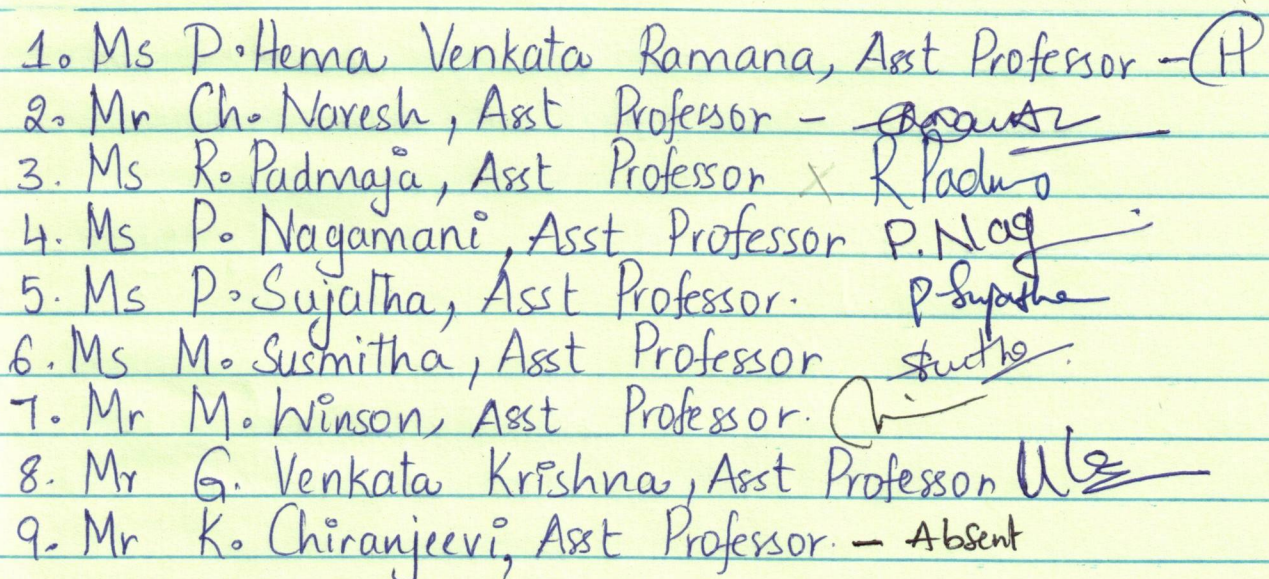 1. Ms P. Hema Venkata Ramana, Asst Professor - H
2. Mr Ch. Naresh, Asst Professor -
3. Ms R. Padmaja, Asst Professor x R Padma
4. Ms P. Nagamani, Asst Professor P. Nag
5. Ms P. Sujatha, Asst Professor. P Sujatha
6. Ms M. Susmitha, Asst Professor
7. Mr M. Winson, Asst Professor.
8. Mr G. Venkata Krishna, Asst Professor
9. Mr K. Chiranjeevi, Asst Professor. - Absent